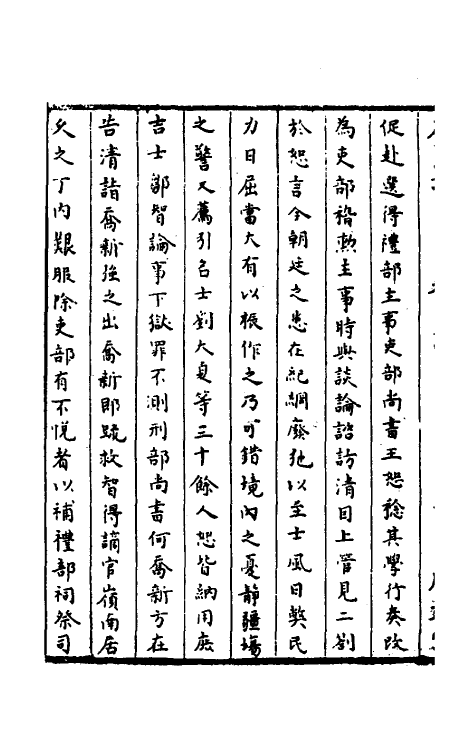 促赴選得禮部主事吏部尚書王恕稔其學行奏改
為吏部稽勲主事時與談論諮訪清因上管見二劄
於恕言今朝廷之患在紀綱廢弛以至士風日獘民
力日屈當大有以振作之乃可錯境內之憂靜疆場
之警又薦引名士劉大夏等三十餘人恕皆納用庶
吉士鄒智論事下獄罪不測刑部尚書何喬新方在
告清詣喬新強之出喬新即疏救智得謫官嶺南居
久之丁內艱服除吏部有不悅者以補禮部祠祭司